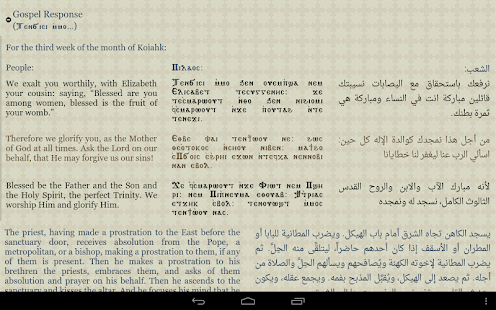 Gospel Response
(Ⲧⲉⲛϭⲓⲥⲓ ⲙ̀ⲙⲟ...)
For the third week of the month of Koiahk:
People:
We exalt you worthily, with Elizabeth
your cousin: saying, "Blessed are you
among women, blessed is the fruit of
your womb."
Ⲡⲓⲗⲁⲟⲥ:
Ⲧⲉⲛϭⲓⲥⲓ ⲙ̀ⲙⲟ ϧⲉⲛ ⲟⲩⲉⲙⲡϣⲁ ⲛⲉⲙ
Ⲉⲗⲓⲥⲁⲃⲉⲧ ⲧⲉⲥⲩⲅⲅⲉⲛⲏⲥ: ϫⲉ
ⲧⲉⲥⲙⲁⲣⲱⲟⲩⲧ ⲛ̀ⲑⲟ ϧⲉⲛ ⲛⲓϩⲓⲟⲙⲓ
ϥ̀ⲥⲙⲁⲣⲱⲟⲩⲧ ⲛ̀ϫⲉ ⲡⲟⲩⲧⲁϩ ⲛ̀ⲧⲉ
ⲧⲉⲛⲉϫⲓ.
الشعب:
نرفعك باستحقاق مع اليصابات نسيبتك
قائلين مباركة انت في النساء ومباركة هي
ثمرة بطنك.
Therefore we glorify you, as the Mother
of God at all times. Ask the Lord on our
behalf, that He may forgive us our sins!
Ⲉⲑⲃⲉ ⲫⲁⲓ ⲧⲉⲛϯⲱⲟⲩ ⲛⲉ: ϩⲱⲥ
ⲑⲉⲟⲧⲟⲕⲟⲥ ⲛ̀ⲥⲏⲟⲩ ⲛⲓⲃⲉⲛ: ⲙⲁϯϩⲟ
ⲉ̀Ⲡϭⲟⲓⲥ ⲉ̀ϩⲣⲏⲓ ⲉ̀ϫⲱⲛ ⲛ̀ⲧⲉϥⲭⲁ ⲛⲉⲛⲛⲟⲃⲓ
ⲛⲁⲛ ⲉⲃⲟⲗ.
من أجل هذا نمجدك كوالدة الإله كل حين:
اسألي الرب عنا ليغفر لنا خطايانا
Blessed be the Father and the Son and
the Holy Spirit, the perfect Trinity. We
worship Him and glorify Him.
Ϫⲉ ϥ̀ⲥⲙⲁⲣⲱⲟⲩⲧ ⲛ̀ϫⲉ Ⲫⲓⲱⲧ ⲛⲉⲙ Ⲡϣⲏ
ⲣⲓ: ⲛⲉⲙ Ⲡⲓⲡⲛⲉⲩⲙⲁ ⲉⲑⲟⲩⲁⲃ: Ϯⲧⲣⲓⲁⲥ
ⲉⲧϫⲏⲕ ⲉⲃⲟⲗ: ⲧⲉⲛⲟⲩⲱϣⲧ ⲙ̀ⲙⲟⲥ
ⲧⲉⲛϯⲱⲟⲩ ⲛⲁⲥ.
لأنه مبارك الآب والابن والروح القدس
الثالوث الكامل، نسجد له ونمجده
The priest, having made a prostration to the East before the
sanctuary door, receives absolution from the Pope, a
metropolitan, or a bishop, making a prostration to them, if any
of them is present. Then he makes a prostration to his
brethren the priests, embraces them, and asks of them
absolution and prayer on his behalf. Then he ascends to the
sanctuary and kisses the altar. And he focuses his mind that he
يسجد الكاهن تجاه الشرق أمام باب الهيكل. ويضرب المطانية للبابا أو
المطران أو الأسقف إذا كان أحدهم حاضراً، ليتلقَّى منه الحِلّ. ثم
يضرب المطانية لإخوته الكهنة ويُصافحهم ويسألهم الحِلَّ والصلاة من
أجله. ثم يصعد إلى الهيكل، ويُقبِّل المذبح بفمه. ويجمع عقله، ويكون